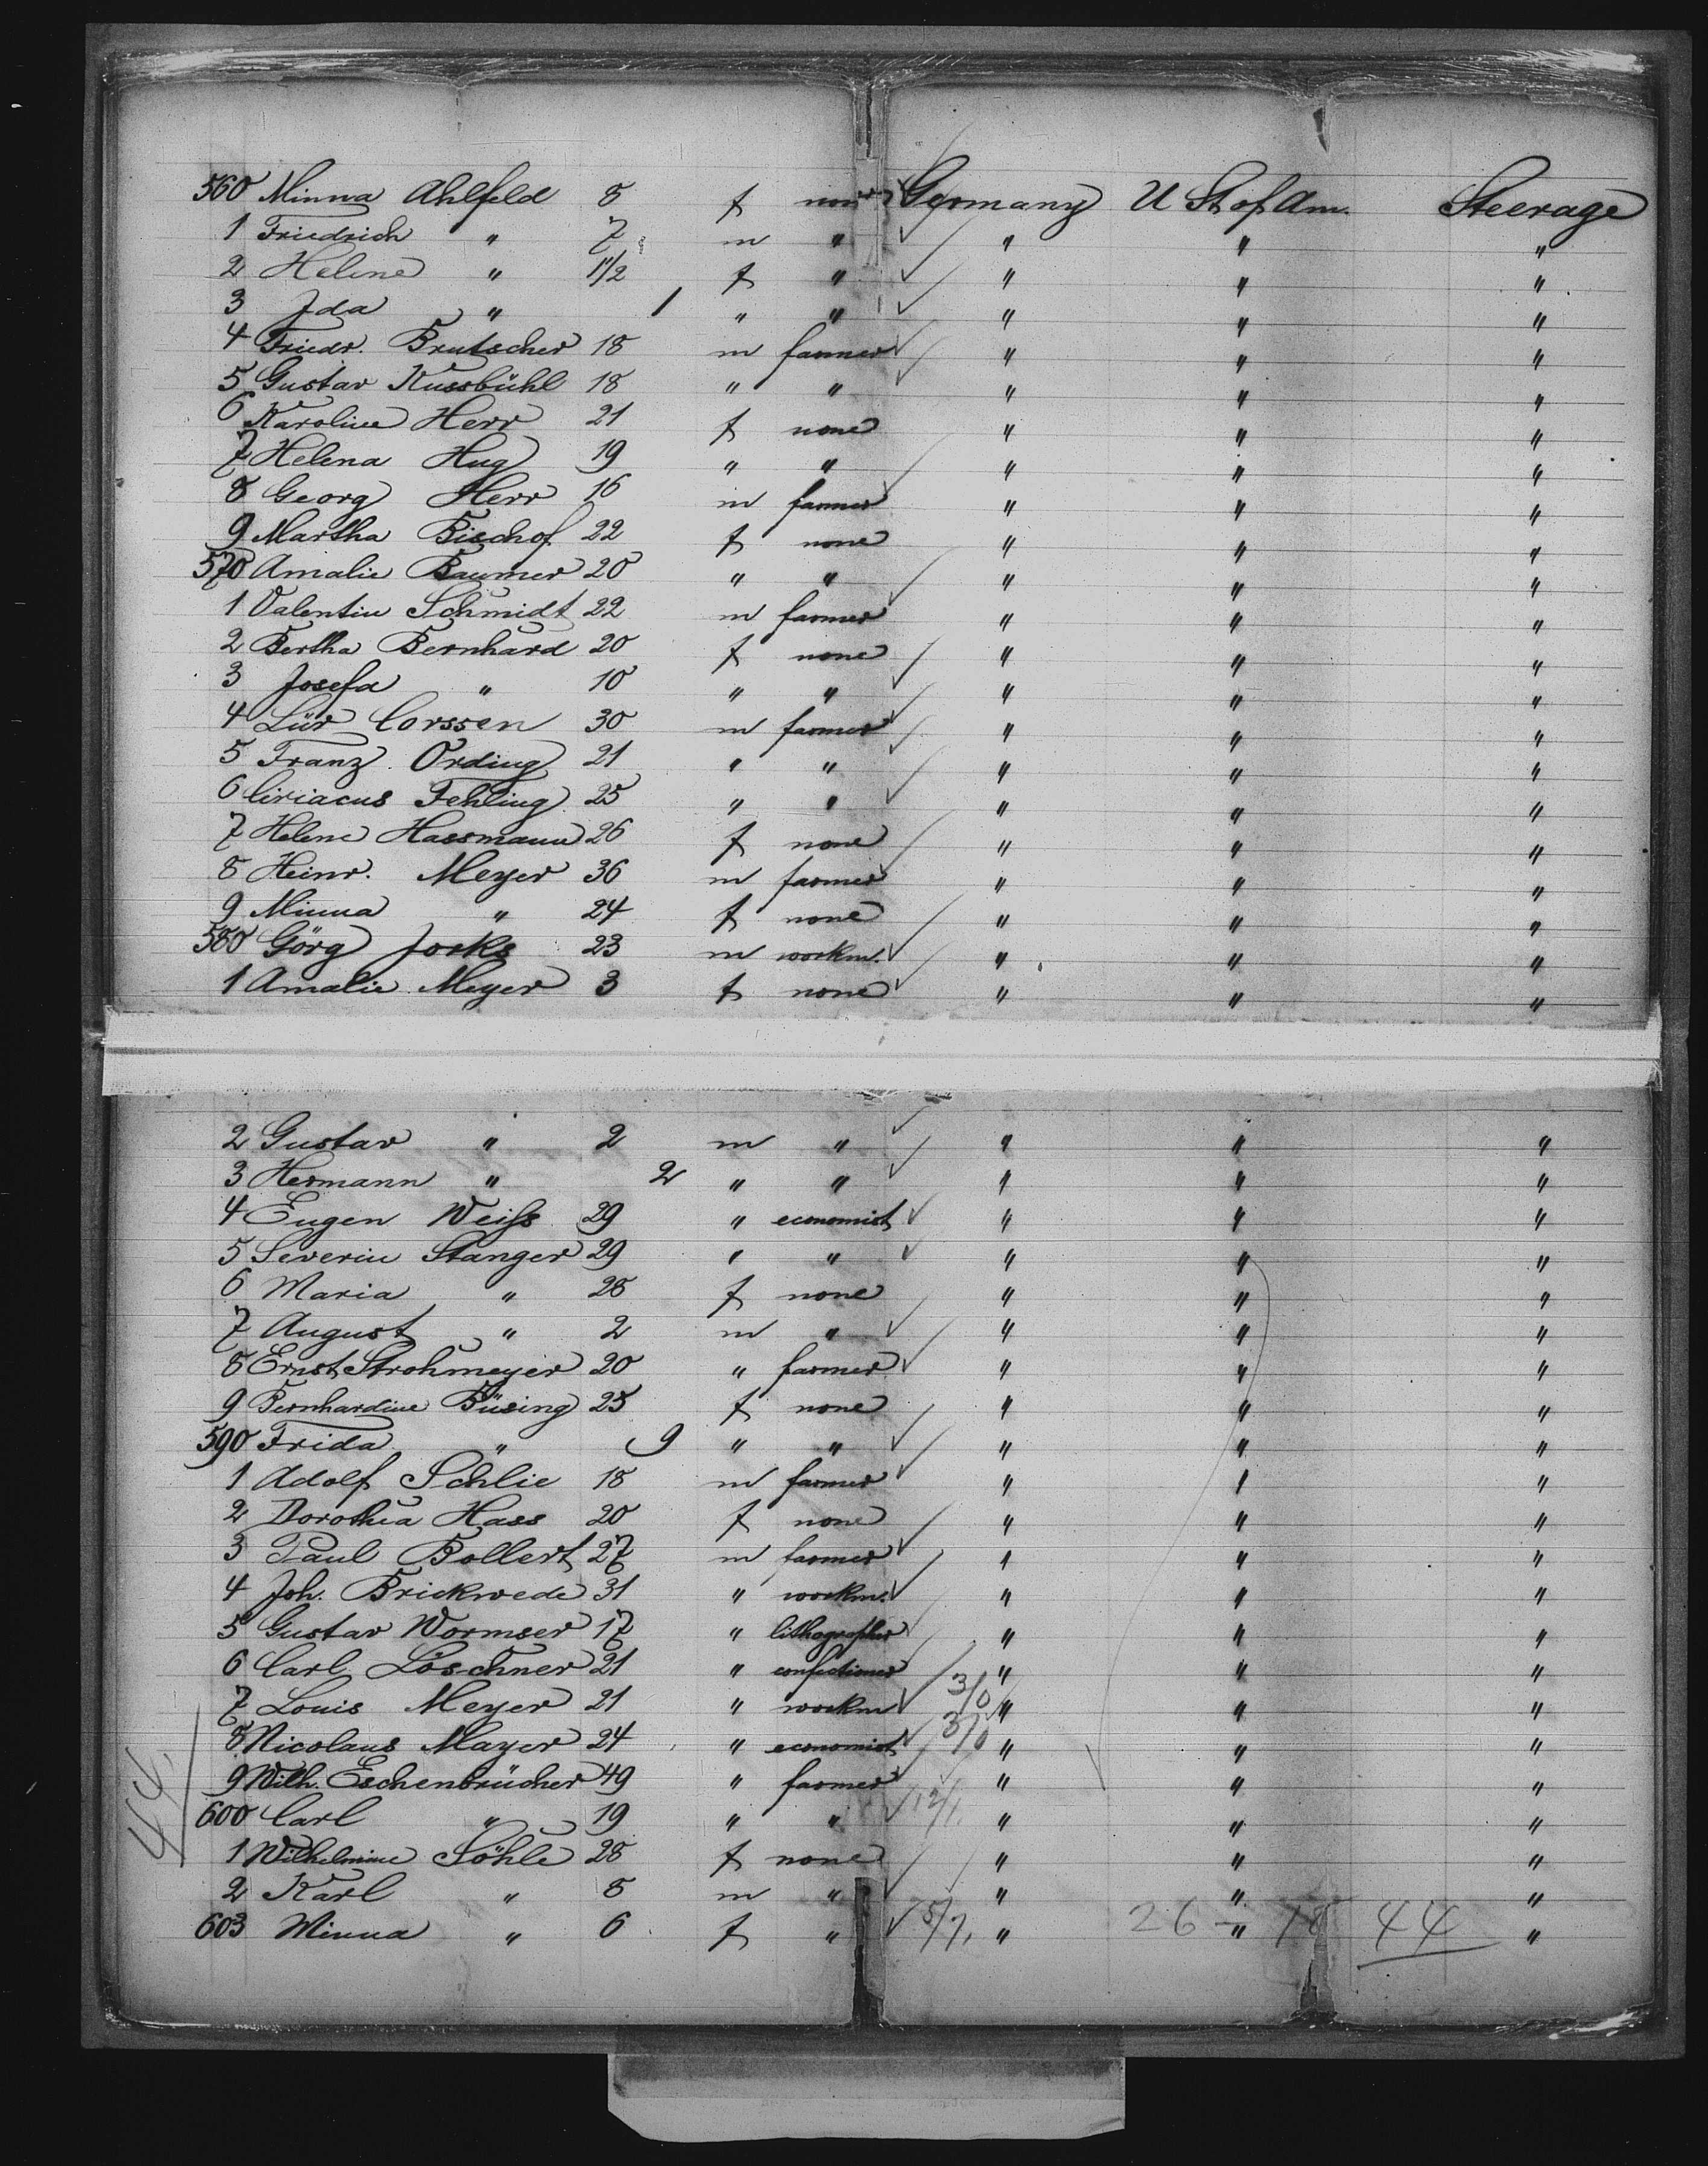 560 Minna Ahlfeld 8 f none Germany U St of Am. Steerage
1 Friedrich " 7 m " " " "
2 Helene " 1 1/2 f " " " "
3 Ida " 1 " " " " "
4 Friedr. Brutscher 18 m farmer " " "
5 Gustav Kussbühl 18 " " " " "
6 Karoline Herr 21 f none " " "
7 Helena Hug 19 " " " " "
8 Georg Herr 16 m farmer " " "
9 Martha Bischof 22 f none " " "
570 Amalie Baumer 20 " " " " "
1 Valentin Schmidt 22 m farmer " " "
2 Bertha Bernhard 20 f none " " "
3 Josefa " 10 " " " " "
4 Lür Corssen 30 m farmer " " "
5 Franz Ording 21 " " " " "
6 Ciriacus Fehling 25 " " " " "
7 Helene Hassmann 26 f none " " "
8 Heinr. Meyer 36 m farmer " " "
9 Minna " 24 f none " " "
580 Görg Jorks 23 m workm. " " "
1 Amalie Meyer 3 f none " " "
2 Gustav " 2 m " " " "
3 Hermann " 2 " " " " "
4 Eugen Weiſs 29 " economist " " "
5 Severin Stanger 29 " " " " "
6 Maria " 28 f none " " "
7 August " 2 m " " " "
8 Ernst Strohmeyer 20 " farmer " " "
9 Bernhardine Büsing 25 f none " " "
590 Frida " 9 " " " " "
1 Adolf Schlie 18 m farmer " " "
2 Dorothea Hass 20 f none " " "
3 Paul Bollert 27 m farmer " " "
4 Joh. Brickwede 31 " workm. " " "
5 Gustav Wormser 17 " lithographer " " "
6 Carl Löschner 21 " confectioner " " "
7 Louis Meyer 21 " workm 3/0 " " "
8 Nicolaus Mayer 24 " economist 3/0 " " "
9 Wilh. Eschenbrücher 49 " farmer " " "
600 Carl " 19 " " 12/1 " " "
1 Wilhelmine Söhle 28 f none " " "
2 Karl " 8 m " " " "
603 Minna " 6 f " 5/7, " " "
26 - 18 44
44